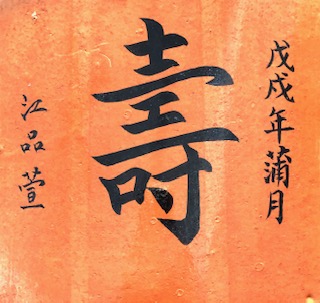 戊戌年蒲月
壽
江品萱